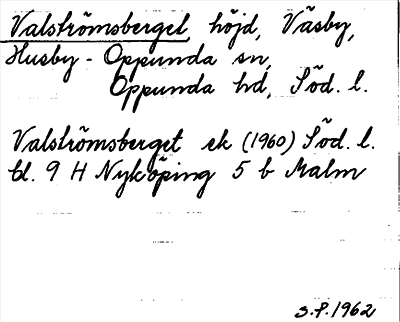 Valströmsberget, höjd, Väsby,
Husby-Oppunda sn,
Oppunda hd, Söd. l.
Valströmsberget ek (1960) Söd. l.
bl. 9 H Nyköping 5 b Malm
S.P. 1962